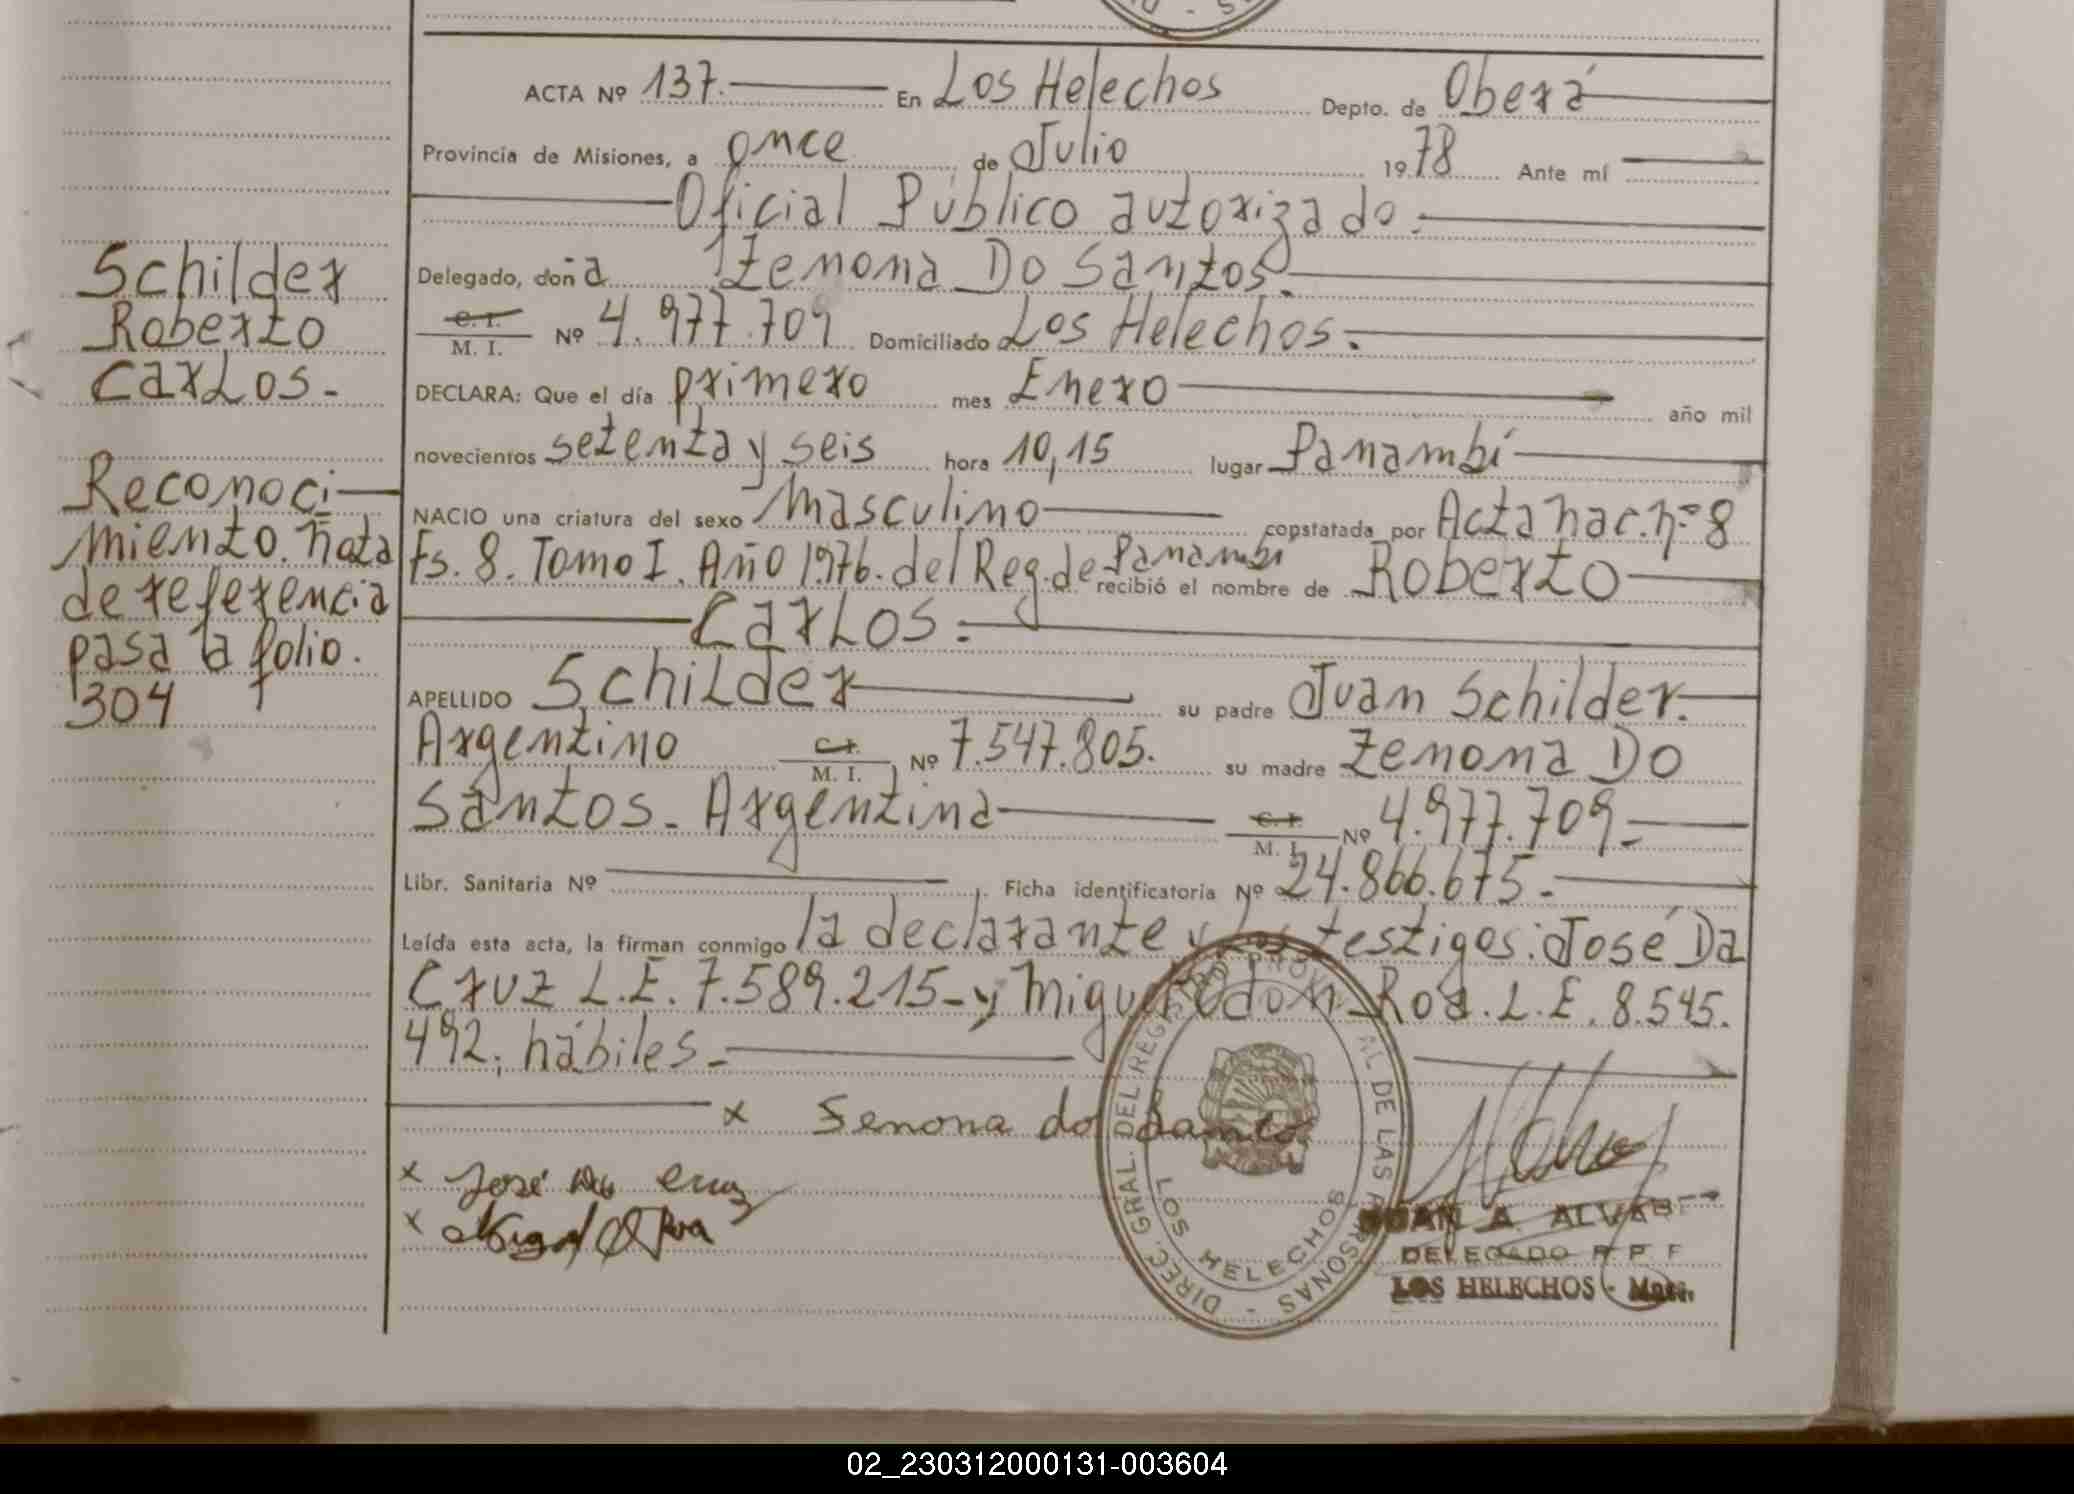 ACTA Nº 137. En Los Helechos Depto. de Oberá
Provincia de Misiones, a once de Julio 1978 Ante mí
Oficial Público autorizado.
Delegado, doña Zenona Do Santos.
C. I.
M. I. Nº 4.977.709 Domiciliado Los Helechos.
DECLARA: Que el día primero mes Enero año mil
novecientos setenta y seis hora 10,15 lugar Panambí
NACIO una criatura del sexo Masculino constatada por Acta nac. nº 8
Fs. 8. Tomo I. Año 1976. del Reg. de Panambí recibió el nombre de Roberto
Carlos.
APELLIDO Schilder su padre Juan Schilder.
Argentino C. I. M. I. Nº 7.547.805. su madre Zenona Do
Santos. Argentina C. I. M. I. Nº 4.977.709
Libr. Sanitaria Nº Ficha identificatoria Nº 24.866.675.
Leída esta acta, la firman conmigo la declarante y los testigos: José Da
Cruz L.E. 7.589.215 y Miguel Roa. L.E. 8.545.
492, hábiles
x Senona do Santos
x José Da Cruz
x Miguel Roa
Schilder
Roberto
Carlos.
Reconoci
miento. nota
de referencia
pasa a folio.
304
DIREC. GRAL. DEL REGISTRO PROVINCIAL DE LAS PERSONAS
LOS HELECHOS
JUAN A. ALVA
DELEGADO R. P. F
LOS HELECHOS - Mnes.
02_230312000131-003604